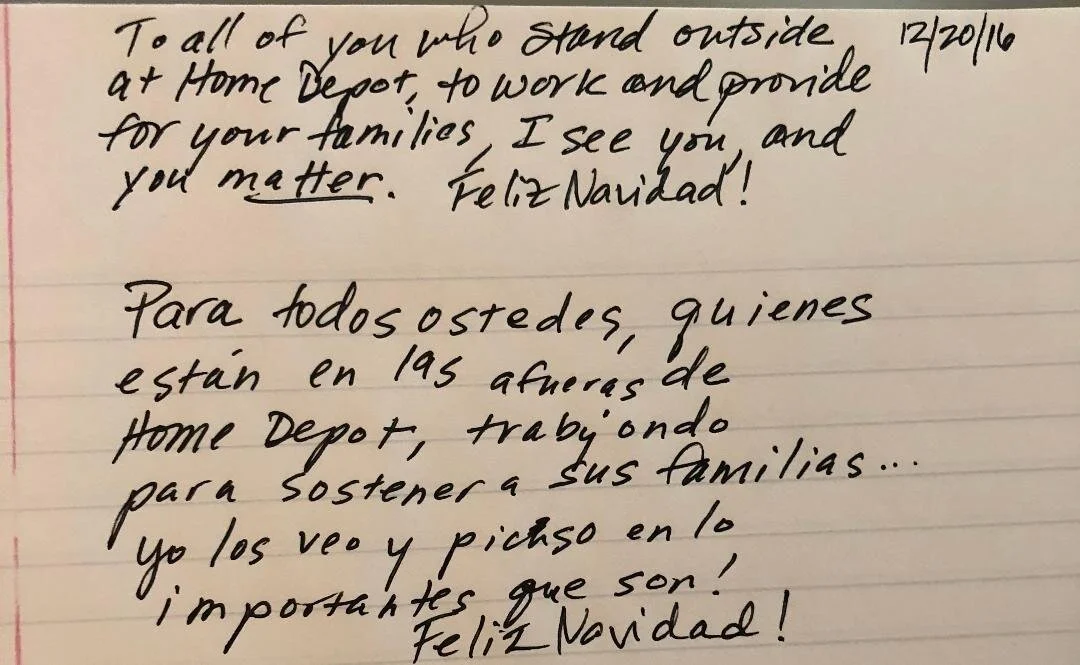 To all of you who stand outside 12/20/16
at Home Depot, to work and provide
for your families, I see you, and
you matter. Feliz Navidad!
Para todos ostedes, quienes
están en las afueras de
Home Depot, trabajondo
para sostener a sus familias...
yo los veo y pienso en lo
importantes que son!
Feliz Navidad!